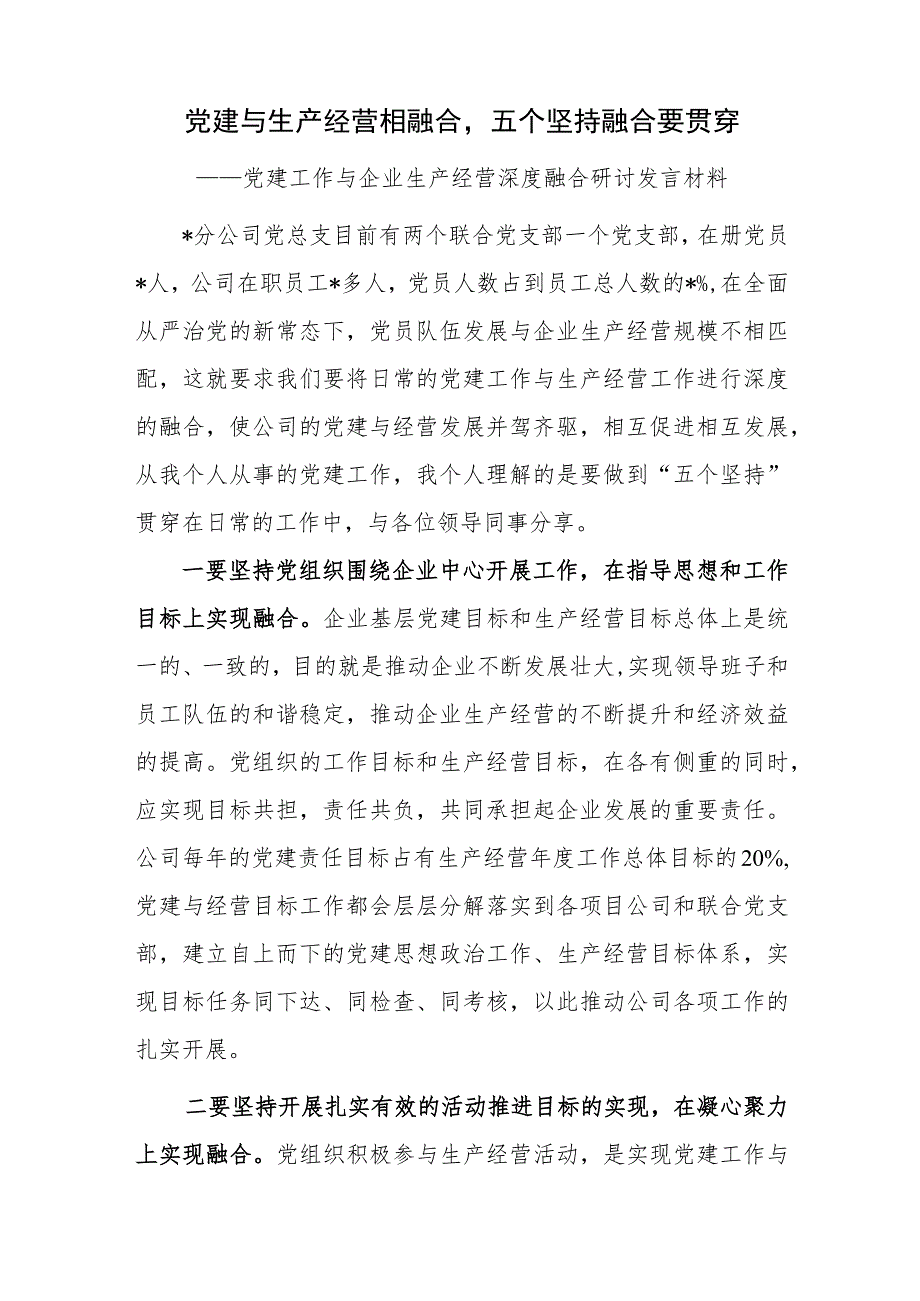 党建与生产经营相融合，五个坚持融合要贯穿
——党建工作与企业生产经营深度融合研讨发言材料
*分公司党总支目前有两个联合党支部一个党支部，在册党员
*人，公司在职员工*多人，党员人数占到员工总人数的*%,在全面
从严治党的新常态下，党员队伍发展与企业生产经营规模不相匹
配，这就要求我们要将日常的党建工作与生产经营工作进行深度
的融合，使公司的党建与经营发展并驾齐驱，相互促进相互发展，
从我个人从事的党建工作，我个人理解的是要做到“五个坚持”
贯穿在日常的工作中，与各位领导同事分享。
一要坚持党组织围绕企业中心开展工作，在指导思想和工作
目标上实现融合。企业基层党建目标和生产经营目标总体上是统
一的、一致的，目的就是推动企业不断发展壮大,实现领导班子和
员工队伍的和谐稳定，推动企业生产经营的不断提升和经济效益
的提高。党组织的工作目标和生产经营目标，在各有侧重的同时，
应实现目标共担，责任共负，共同承担起企业发展的重要责任。
公司每年的党建责任目标占有生产经营年度工作总体目标的20%,
党建与经营目标工作都会层层分解落实到各项目公司和联合党支
部，建立自上而下的党建思想政治工作、生产经营目标体系，实
现目标任务同下达、同检查、同考核，以此推动公司各项工作的
扎实开展。
二要坚持开展扎实有效的活动推进目标的实现，在凝心聚力
上实现融合。党组织积极参与生产经营活动，是实现党建工作与